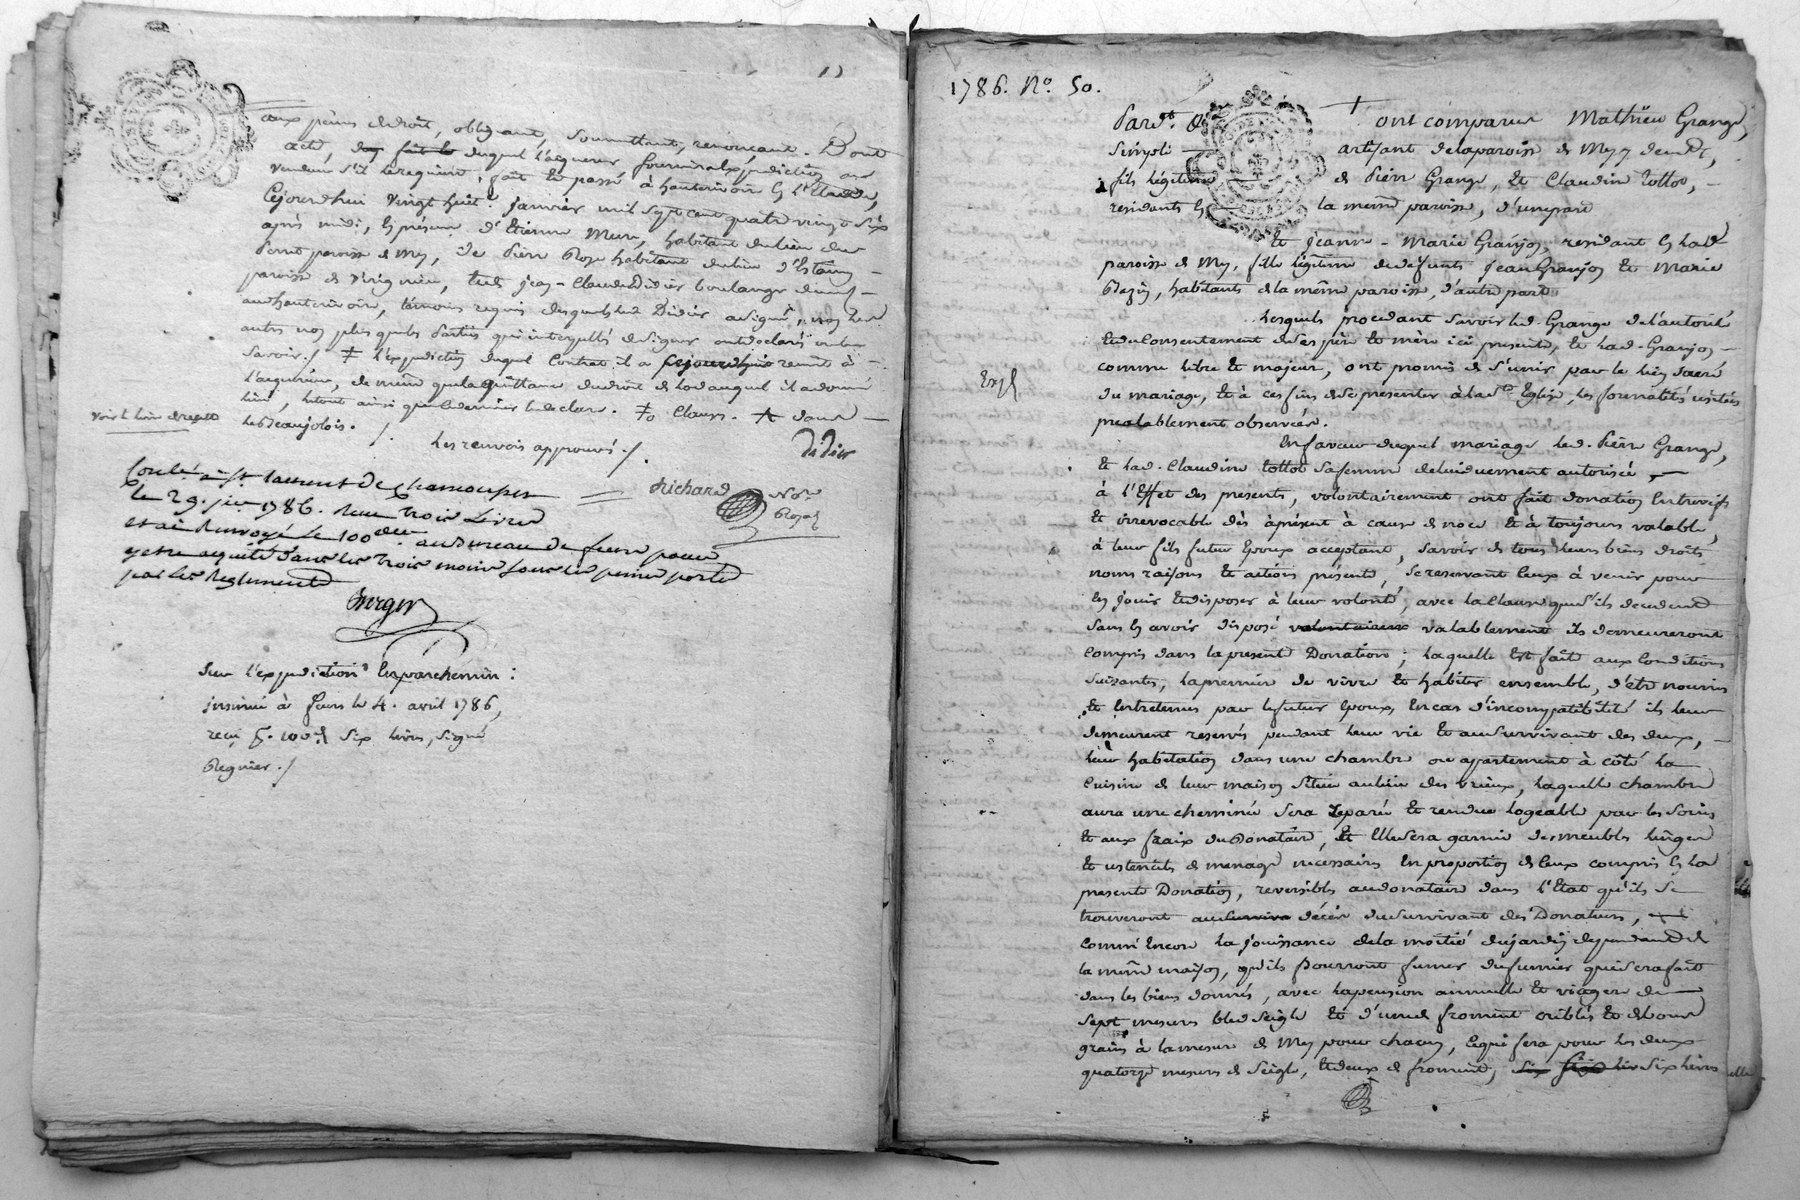 aux peines de droit, obligeant, soumettant, renonçant. Dont
acte, duquel l'acquereur fournira expedition au
vendeur s'il le requiert; fait et passé à hauterivoire
Cejourdhui vingt huit janvier mil sept cent quatre vingt six
après midi, en présence d'Etienne Mure, habitant du lieu du
paroisse de Mey, de Pierre habitant du lieu d'
paroisse de Virignieu, et de jean-Claude Didier boulanger
audit hauterivoire, témoins requis desquels led Didier a signé, non les
autres non plus que les parties qui interpellés de signer ont declaré ne le
savoir./ l'expedition duquel Contrat il a cejourdhui remit à
l'acquereur, de meme que la quittance du droit de lod auquel il a donné
lieu, le tout ainsi que le dernier le declare. Clauss. dans
le Beaujolois./
les renvois approuvés./.
Didier
Richard Nore Royal
Controlé à st laurent de chamousset
le 29. jer 1786. Reçu trois Livres
et ai Renvoyé le 100eme au Bureau de feurs pour
y etre acquité dans les trois mois sous les peines portés
par les Reglements
Berger
Sur l'expedition en parchemin:
insinué à feurs le 4. avril 1786,
reçu pr. 100e. six livres, signé
Regnier./
1786. No. 50.
Pardt.
ont comparus Mathieu Grange,
artisant de la paroisse de Mey
fils légitime de Pierre Grange, et Claudine tottot,
residants en la meme paroisse, d'une part
Et jeanne-Marie Granjon, residant en lad
paroisse de Mey, fille légitime de defunts jean Granjon et Marie
habitants de la même paroisse, d'autre part
Lesquels procedant savoir led. Grange de l'autorité
et du Consentement de ses père et mère ici presents, et lad. Granjon
comme libre et majeure, ont promis de s'unir par le lien sacré
du mariage, et à ces fins de se presenter à la ste Eglise, les formalités usitées
prealablement observées.
En faveur duquel mariage led. Pierre Grange,
et lad. Claudine tottot sa femme de lui duement autorisée
à l'Effet des presents, volontairement ont fait donation entrevifs
et irrevocable dès à présent à cause de noce et à toujours valable,
à leur fils futur Epoux acceptant, savoir de tous leurs biens droits
noms raisons et actions présents, se reservant ceux à venir pour
en jouir et disposer à leur volonté, avec la Clause que s'ils decedent
sans en avoir disposé valablement ils demeureront
compris dans la presente Donation; laquelle est faite aux Conditions
suivantes, la premiere de vivre et habiter ensemble, d'etre nourris
et entretenus par le futur epoux, en cas d'incompatibilité ils leur
demeurent reservés pendant leur vie et au survivant des deux,
leur habitation dans une chambre ou apartement à côté la
Cuisine de leur maison située au lieu des vieux, laquelle chambre
aura une cheminée sera separée et rendue logeable par les soins
et aux fraix du Donataire, et Elle sera garnie des meubles linges
et ustencils de menage necessaires en proportion de ceux compris en la
presente Donation, reversibles au donataire dans l'Etat qu'ils se
trouveront au décès du survivant des Donateurs,
comme Encore la jouissance de la moitié du jardin dependant de
la même maison, qu'ils pourront fumer du fumier qui se fera fait
dans les biens donnés, avec la pension annuelle et viagere de
sept mesures bled seigle et d'une de froment criblés et de bons
grains à la mesure de Mey pour chacun, ce qui fera pour les deux
quatorze mesures de seigle, et deux de froment, six livres
Expé